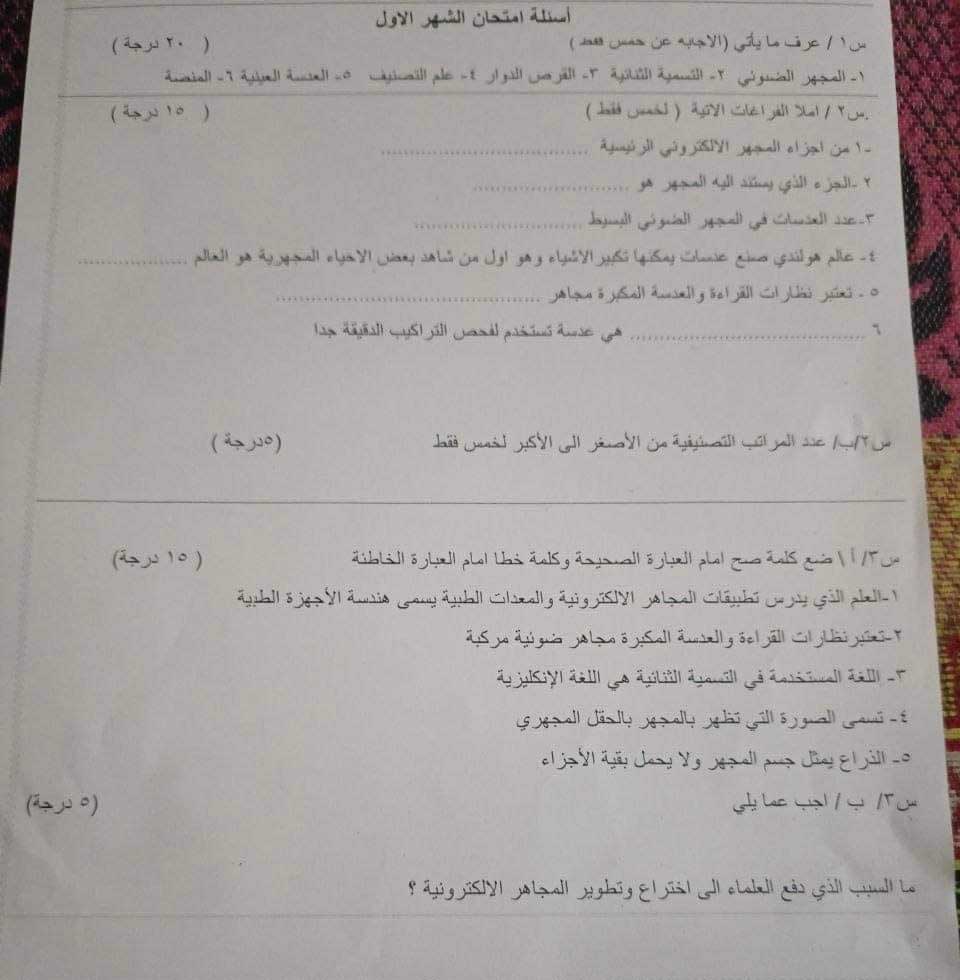 أسئلة امتحان الشهر الاول
س١ / عرف ما يأتي (الاجابه عن خمس فقط ) ( ٢٠ درجة )
١- المجهر الضوئي ٢- التسمية الثنائية ٣- القرص الدوار ٤- علم التصنيف ٥- العدسة العينية ٦- المنصة
س٢ / املا الفراغات الاتية ( لخمس فقط ) ( ١٥ درجة )
١- من اجزاء المجهر الالكتروني الرئيسية ..................................
٢-الجزء الذي يستند اليه المجهر هو ..........................
٣-عدد العدسات في المجهر الضوئي البسيط ............................
٤- عالم هولندي صنع عدسات يمكنها تكبير الاشياء وهو اول من شاهد بعض الاحياء المجهرية هو العالم ..................
٥ - تعتبر نظارات القراءة والعدسة المكبرة مجاهر ............................................
٦ ....................................... هي عدسة تستخدم لفحص التراكيب الدقيقة جدا
س٢/ب/ عدد المراتب التصنيفية من الأصغر الى الأكبر لخمس فقط (٥درجة )
س٣/ أ \ ضع كلمة صح امام العبارة الصحيحة وكلمة خطا امام العبارة الخاطئة ( ١٥ درجة)
١-العلم الذي يدرس تطبيقات المجاهر الالكترونية والمعدات الطبية يسمى هندسة الأجهزة الطبية
٢-تعتبرنظارات القراءة والعدسة المكبرة مجاهر ضوئية مركبة
٣- اللغة المستخدمة في التسمية الثنائية هي اللغة الإنكليزية
٤- تسمى الصورة التي تظهر بالمجهر بالحقل المجهري
٥- الذراع يمثل جسم المجهر ولا يحمل بقية الأجزاء
س٣/ ب / اجب عما يلي (٥ درجة)
ما السبب الذي دفع العلماء الى اختراع وتطوير المجاهر الالكترونية ؟